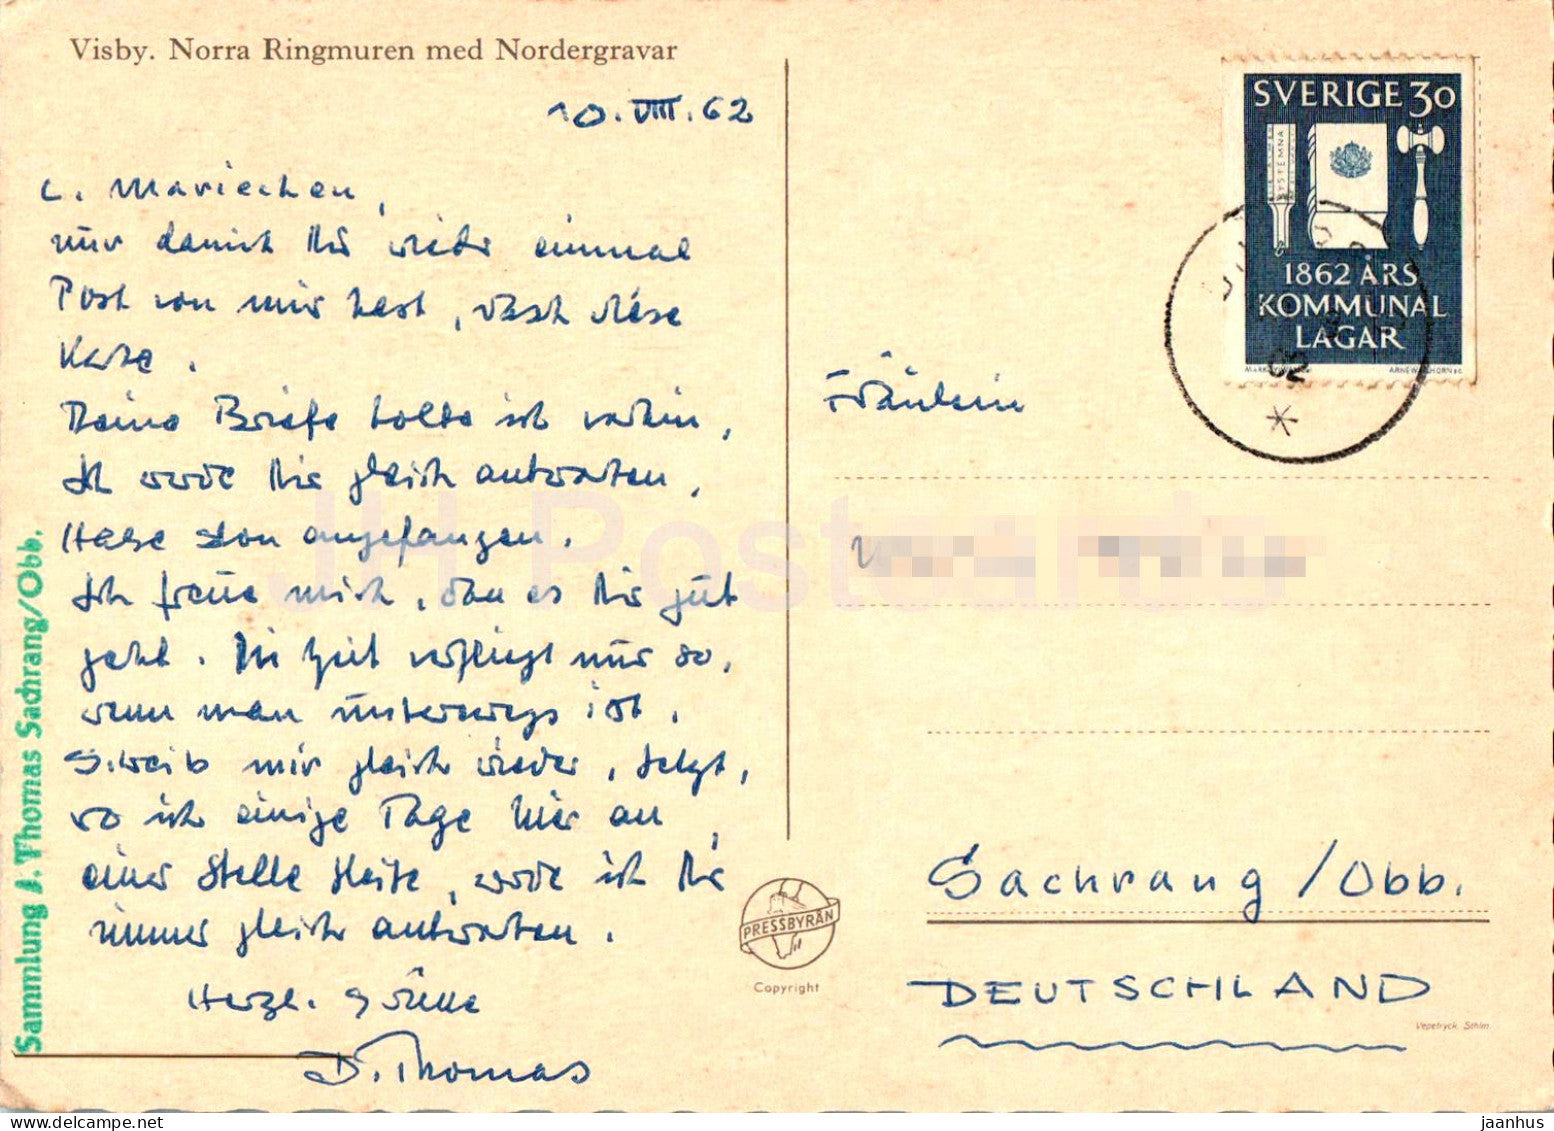 Visby. Norra Ringmuren med Nordergravar
10. VIII. 62
L. Mariechen,
nur damit Dir wieder einmal
Post von mir hast, rasch diese
Karte.
Deine Briefe holte ich vorhin,
Ich werde Dir gleich antworten,
Habe schon angefangen.
Ich freue mich, dass es Dir gut
geht. Die Zeit verfliegt nur so,
wenn man unterwegs ist.
Schreib mir gleich wieder, jetzt,
wo ich einige Tage hier an
einer Stelle bleibe, werde ich Dir
immer gleich antworten.
Herzl. Grüsse
D. Thomas
Sammlung J. Thomas Sachrang/Obb.
SVERIGE 30
SYSTEMNA
1862 ÅRS
KOMMUNAL
LAGAR
62
Fräulein
Sachrang/Obb.
DEUTSCHLAND
PRESSBYRÅN
Copyright
Vepetryck. Sthlm
JH Postcards
@jaanhus